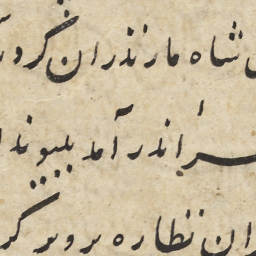 شاه مازندران کرد
سر اندر آمد بپیوند
ران نظاره برو بر کر